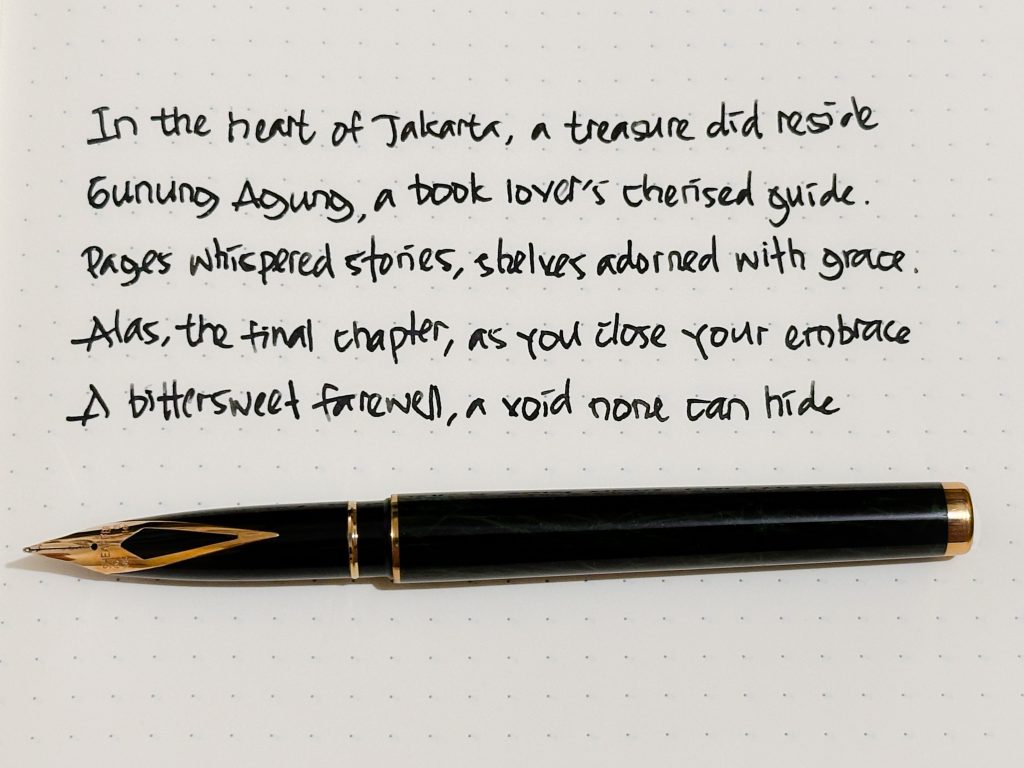 In the heart of Jakarta, a treasure did reside
Gunung Agung, a book lover's cherised guide.
Pages whispered stories, shelves adorned with grace.
Alas, the final chapter, as you close your embrace
A bittersweet farewell, a void none can hide